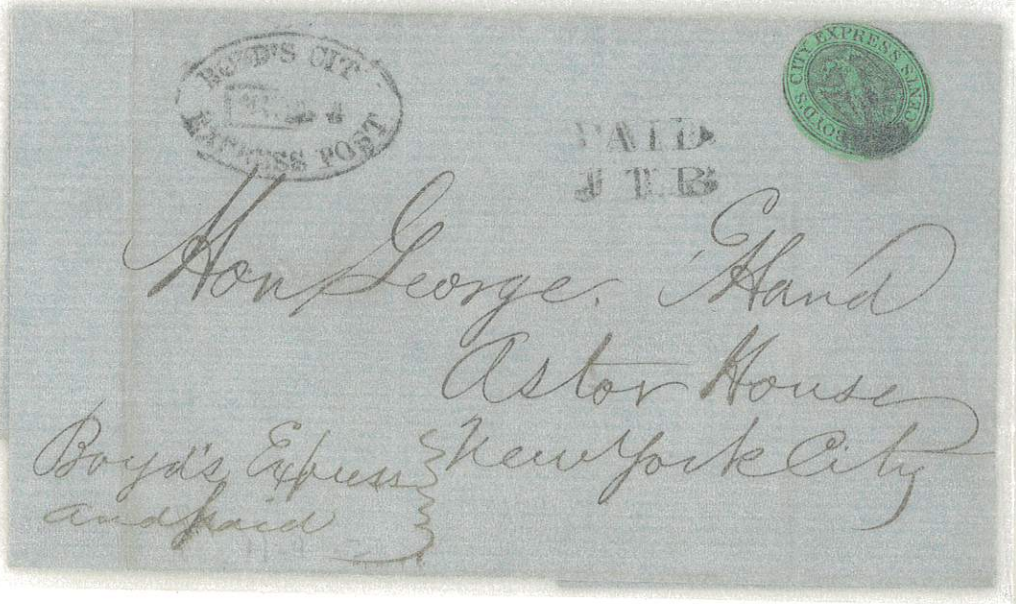 BOYD'S CIT
EXPRESS POST
PAID
J T B
BOYD'S CITY EXPRESS CENTS
Hon George Hand
Astor House
New York City
Boyd's Express
and paid